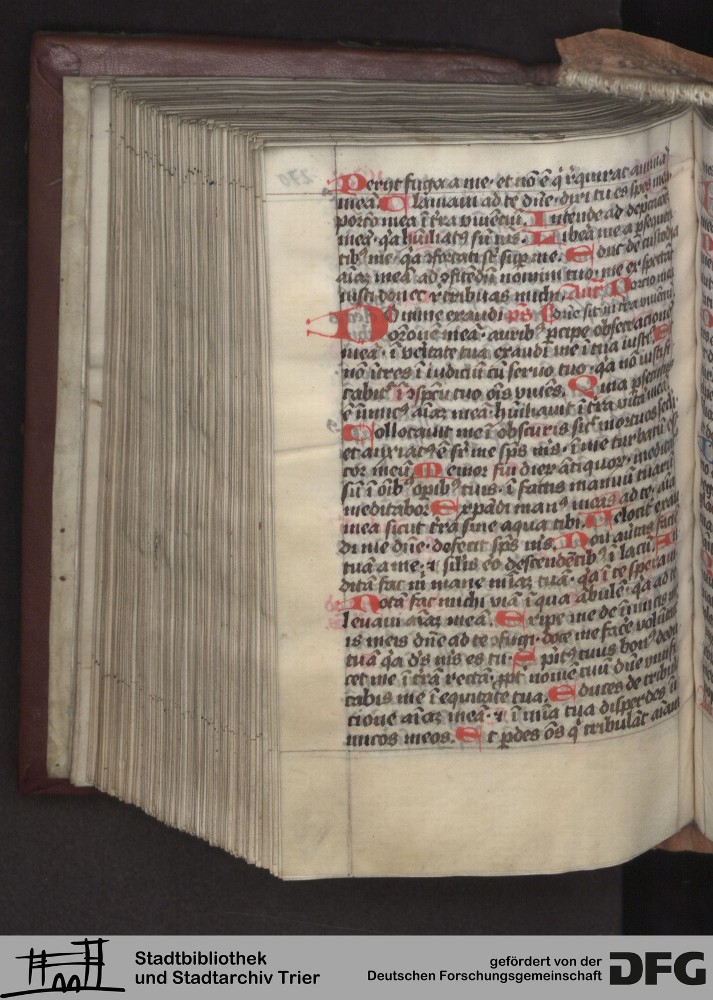 Periit fuga a me· et nō ē q̄ reqͥrat aīam
meā. Clamavi ad te dn̄e· dixi tu es spes mea
porcō mea ī t̄ra viuenciū. Intende ad dep̄cacōe
meā· qͣ hūiliatꝰ sū nīs. Libera me a p̄sequen
tibꝰ me· qͣ ꝯfortati sē suꝑ me. Educ de custodia
aīaʒ meā ad ꝯfitēdū nomini tuo· me exspectāt
iusti donec retribuas michi. Anͭ Portio mea
dn̄e sit in t̄ra viuenciū. pͫs
Domine exaudi
orōneʒ meā· auribꝰ ꝑcipe obsecracionē
meā· ī veritate tua exaudi me ī tua iusticͣ. Et
nō īt̄res ī iudiciū cū seruo tuo· qͣ nō iustifi
cabitͬ ī ꝯspc̄u tuo oīs viuēs. Quia ꝑsecutꝰ
ē īimicꝰ aīaʒ meā· hūiliauit ī t̄ra vitā meā.
Collocauit me ī obscuris sicͭ mortuos sedi·
et anxiatꝰ ē sꝑ me sps̄ mͥs· ī me turbatū ē
cor meū. Memor fui dierʒ ātiquorʒ· meditatꝰ
sū ī oībꝰ oꝑibꝰ tuis· ī factis manuū tuarū
meditabor. Expādi manꝰ meas ad te, aīa
mea sicut t̄ra sine aqua tibi. Velocit̄ exau
di me dn̄e· defecit sps̄ mͥs. Non au̾tas faciē
tuā a me, ⁊ silīs ero descendētibꝰ ī lacū. Au
ditā fac m̄ mane mīaʒ tuā· qͣ ī te speraui.
Notā fac michi viā ī qua ābulē· qͣ ad te
leuaui aīaʒ meā. Eripe me de īimicis me
is meis dn̄e ad te ꝯfugi· doce me face̾ volūtatē
tuā qͣ ds̄ mͥs es tu· Spͥtꝰ tuus bonꝰ dedu
cet me ī t̄rā rectā· ꝓpt̾ nomē tuū dn̄e viuifi
cabis me ī equitate tua. Educes de tribula
cione aīaʒ meā· ⁊ ī mīa tua disperdes īi
micos meos. Et ꝑdes ōs qͥ tribulāt aīam
Stadtbibliothek
und Stadtarchiv Trier
gefördert von der
Deutschen Forschungsgemeinschaft
DFG